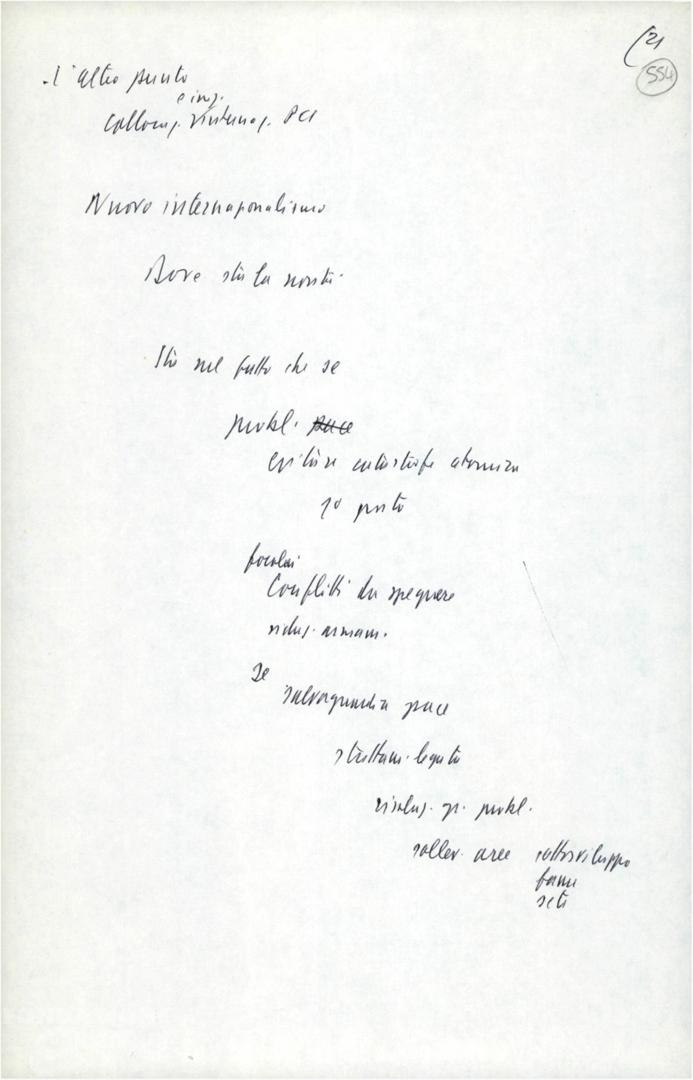 (21
554
- l'altro punto
e iniz.
Collocaz. internaz. PCI
Nuovo internazionalismo
Dove sta la novità
Sta nel fatto che se
probl. pace
evitare catastrofe atomica
1º posto
focolai
Conflitti da spegnere
riduz. armam.
Se
salvaguardia pace
strettam. legata
risoluz. gr. probl.
sollev. aree sottosviluppo
fame
sete